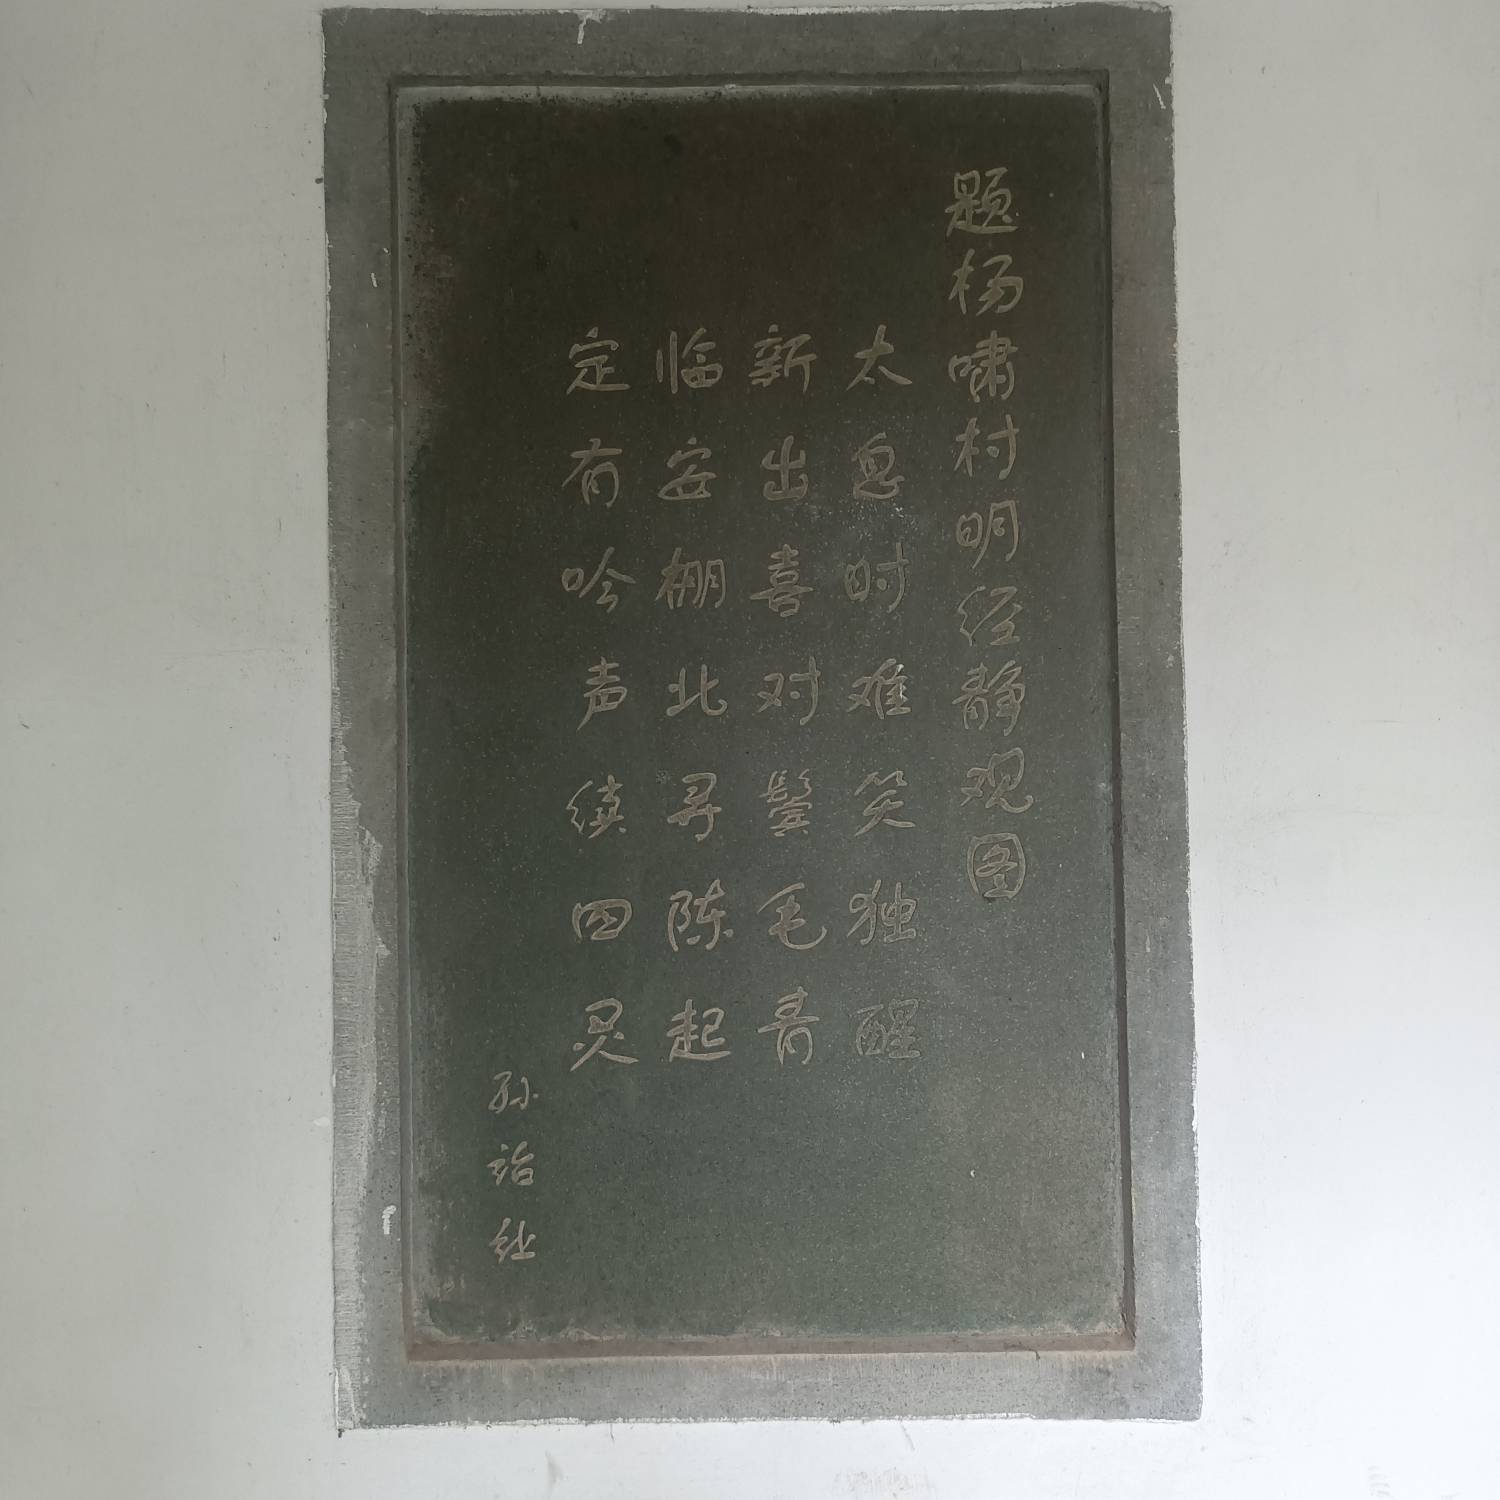 题杨啸村明经静观图
太息时难笑独醒
新出喜对鬓毛青
临安棚北寻陈起
定有吟声续四灵
孙诒经